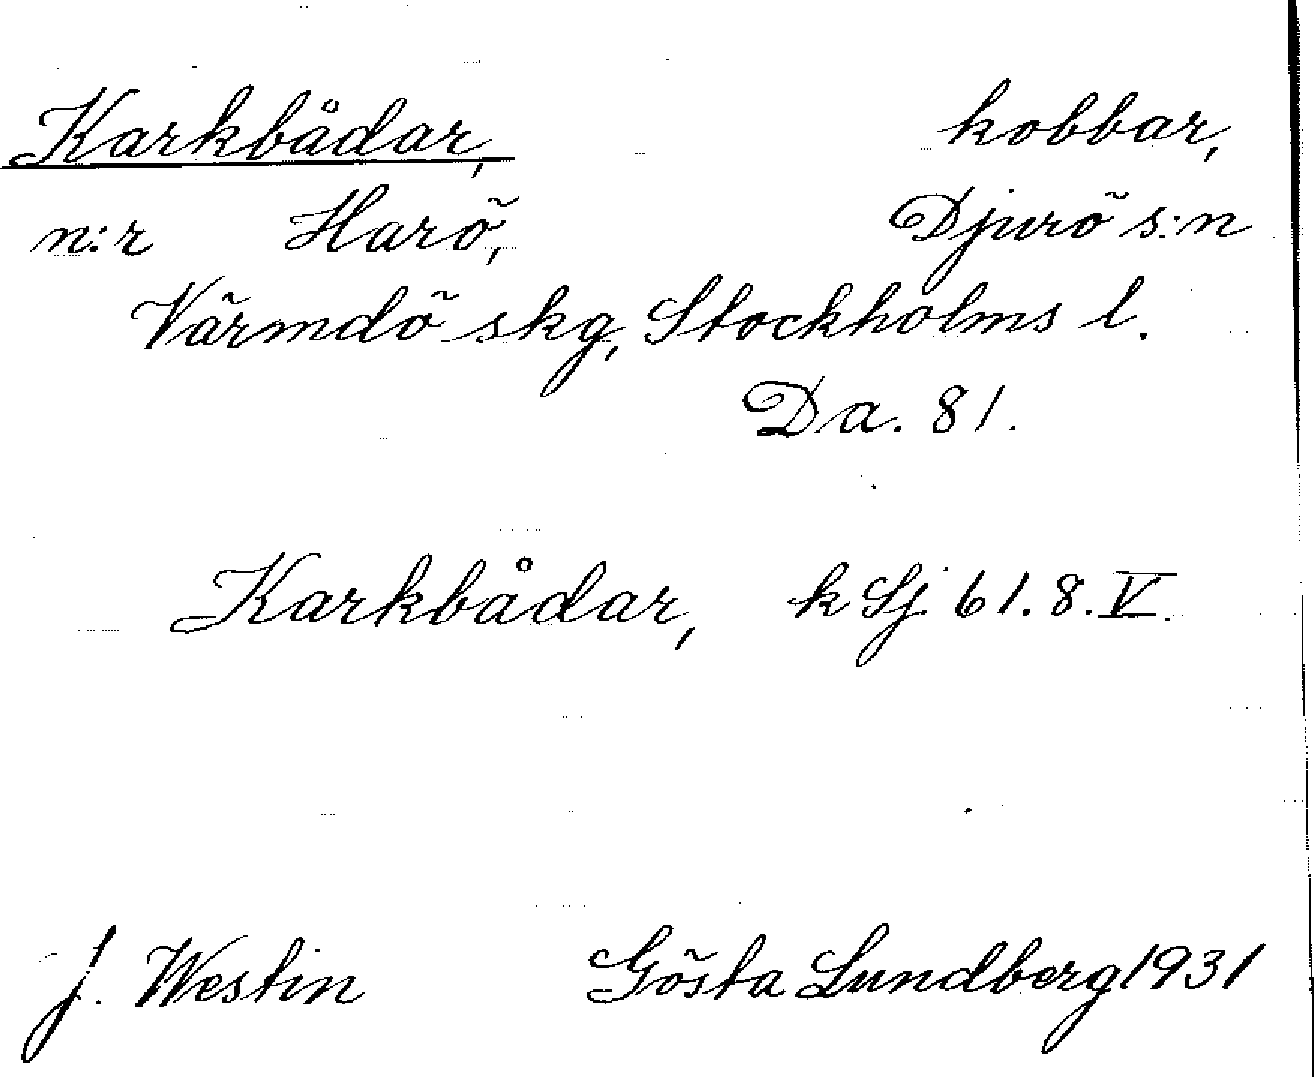 Karkbådar, kobbar,
n:r Harö, Djurö s:n
Värmdö skg, Stockholms l.
Da. 81.
Karkbådar, k Sj. 61.8.V.
J. Westin Gösta Lundberg 1931